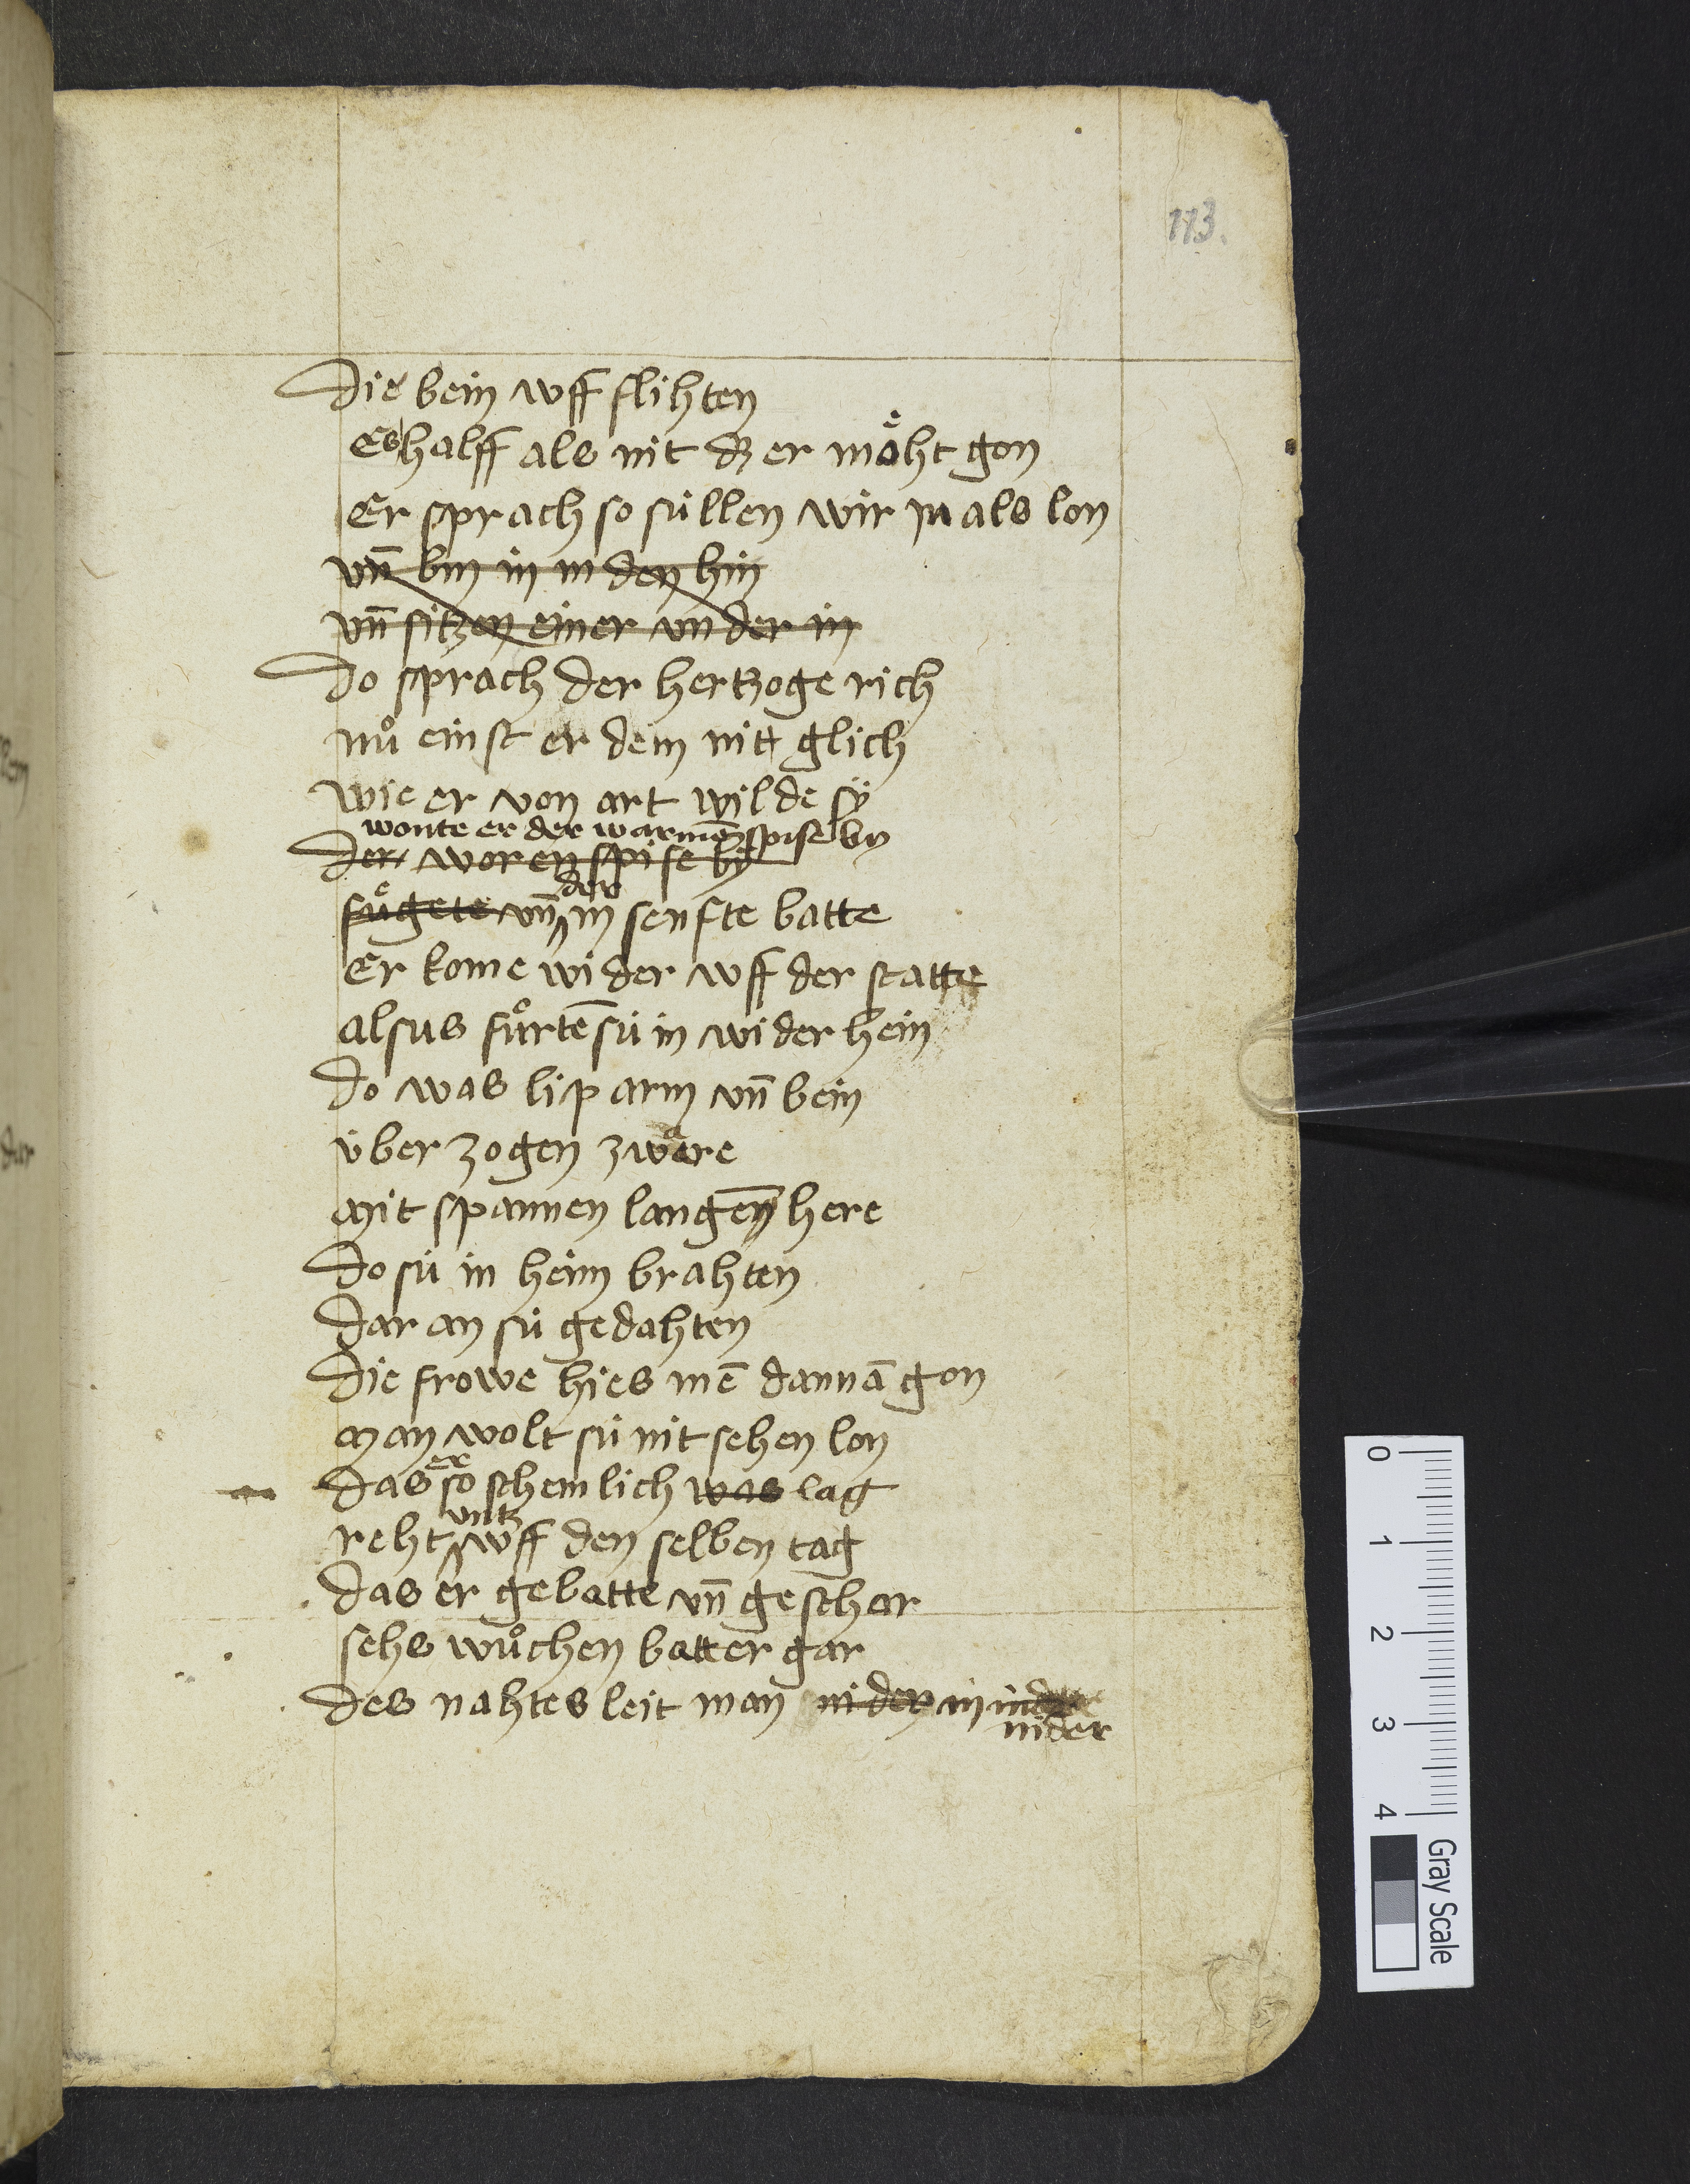 113.
die bein vff slihten
Es halff als nit dz er moͤht gon
Er sprach so süllen wir in als lon
vn̄ bin in in den hin
vn̄ sitzen einer vnder in
do sprach der hertzoge rich
nuͦ einst er dem nitt glich
wie er von art wilde sÿ
wonte er der warmē spise by
der woren spise bÿ
der
fuͤgete vn̄ in senfte batte
Er kome wider vff der statte
alsus fuͦrtē sü in wider hein
do was lip arm vn̄ bein
über zogen zware
mit spannen langen̄ here
do sü in heim brahten
dar an sü gedahten
die frowe hies mē dannā gon
man wolt sü nit sehen lon
er
das so schemlich was lag
vntz
reht vff den selben tag
das er gebatte vn̄ geschar
sehs wuͦchen batter gar
des nahtes leit man nider in
nider
0 1 2 3 4
Gray Scale